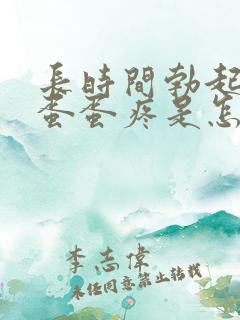 長時間勃起
蛋蛋疼是怎
李志偉
未经同意禁止转载